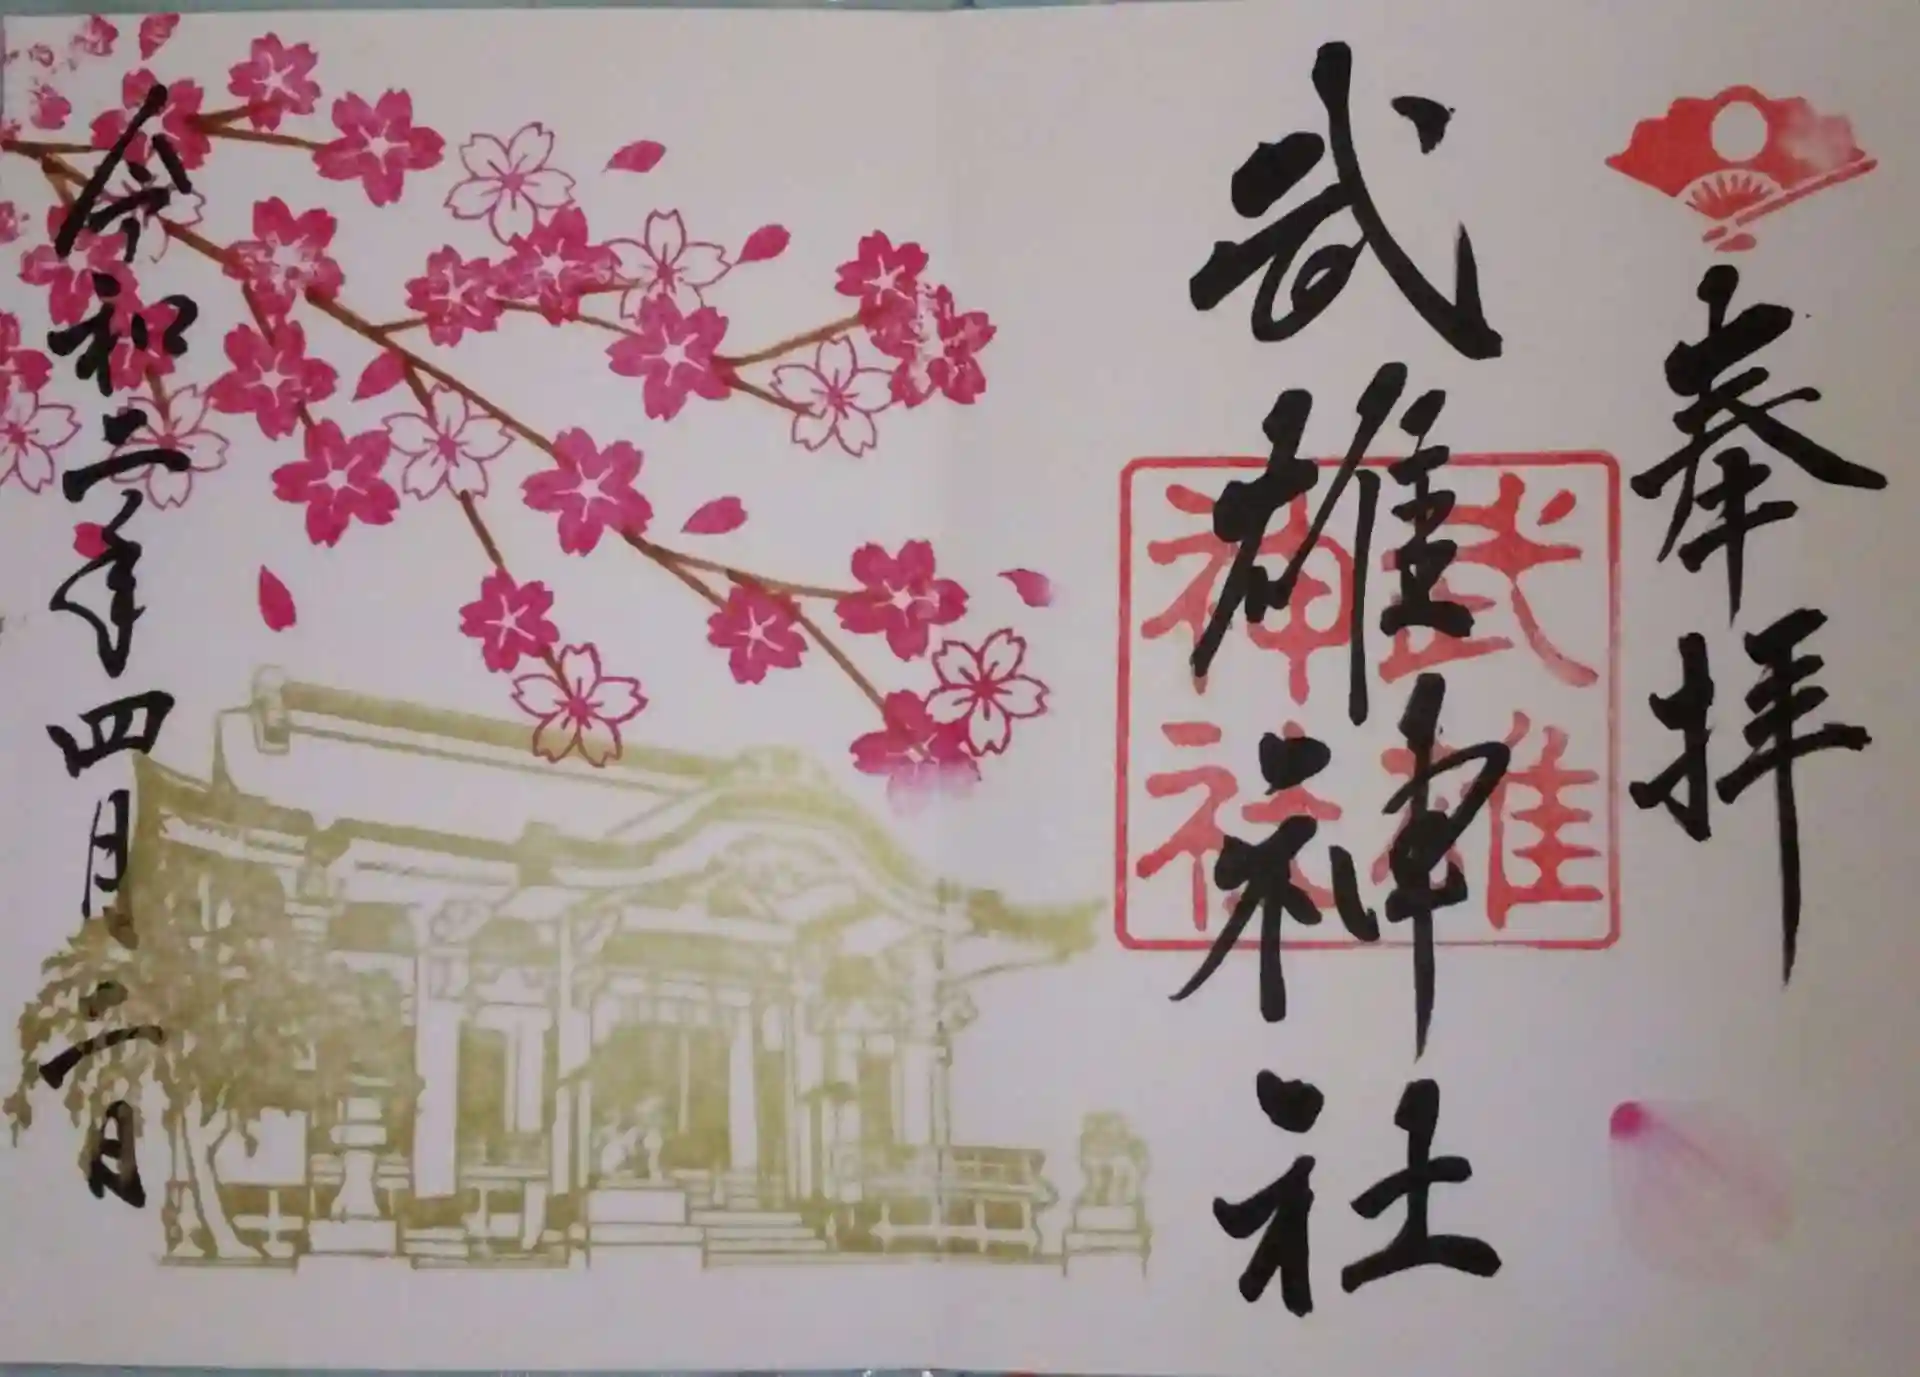 奉拝
武雄神社
武雄
神社
令和二年四月二日